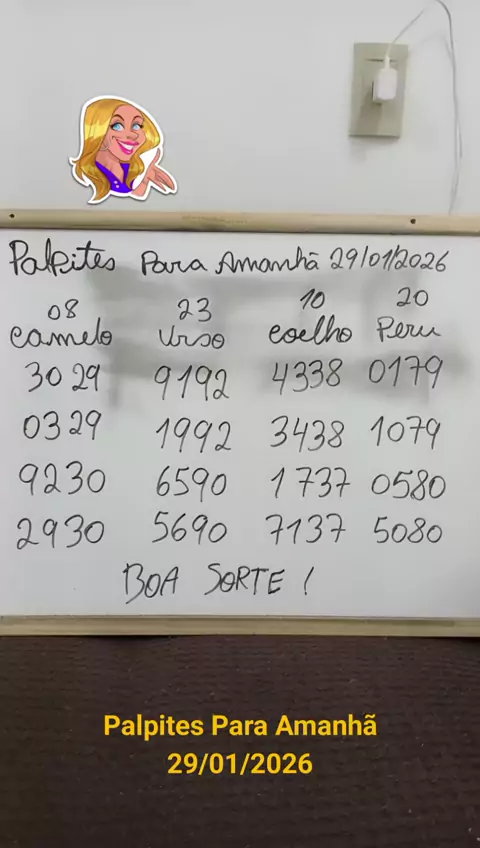 Palpites Para Amanhã 29/01/2026
08 23 10 20
Camelo Urso Coelho Peru
3029 9192 4338 0179
0329 1992 3438 1079
9230 6590 1737 0580
2930 5690 7137 5080
BOA SORTE !
Palpites Para Amanhã
29/01/2026